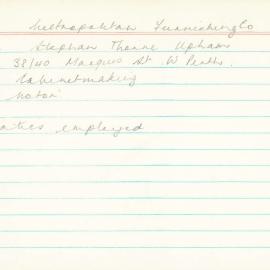 Metropolitan Furnishing Co
Stephen Thorne Upham
38/40 Marquis St. W Perth.
Cabinetmaking
Motor
employed